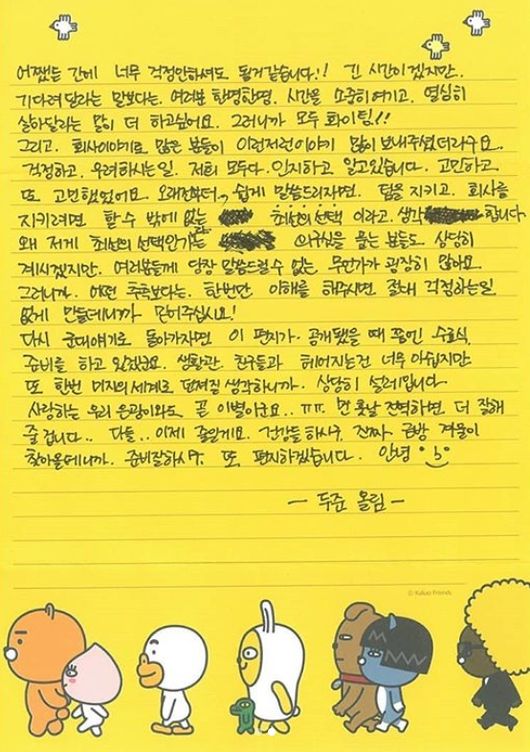 어쨌든 간에 너무 걱정안하셔도 될거같습니다!! 긴 시간이겠지만.
기다려달라는 말보다는. 여러분 한명한명. 시간을 소중히여기고. 열심히
살아달라는 말이 더 하고싶어요. 그러니까 모두 화이팅!!
그리고. 회사이야기로 많은 분들이 이런저런이야기 많이 보내주셨더라구요.
걱정하고. 우려하시는일. 저희 모두다. 인지하고 알고있습니다. 고민하고
또 고민했었어요. 오래전부터.. 쉽게 말씀드리자면. 팀을 지키고. 회사를
지키려면 할 수 밖에 없는 최선의 선택 이라고. 생각 합니다
왜 저게 최선의 선택인가는 의구심을 품는 분들도 상당히
계시겠지만. 여러분들께 당장 말씀드릴수 없는 무언가가 굉장히 많아요.
그러니까. 어떤 추측보다는. 한번만 이해를 해주시면 절대 걱정하는일
없게 만들테니까 믿어주십시요!
다시 군대이야기로 돌아가자면 이 편지가. 공개됐을 때 쯤엔 수료식.
준비를 하고 있겠군요. 생활관. 친구들과 헤어지는건 너무 아쉽지만
또 한번 미지의세계로 펼쳐질 생각하니까. 상당히 설레입니다
사랑하는 우리 은광이와도 곧 이별이군요.. ㅠㅠ. 먼 훗날 전역하면 더 잘해
줄 겁니다.. 다들.. 이제 줄일게요. 건강들 하시구. 진짜. 금방 겨울이
찾아올테니까. 준비잘하시구. 또. 편지하겠습니다. 안녕
- 두준 올림 -
© Kakao Friends